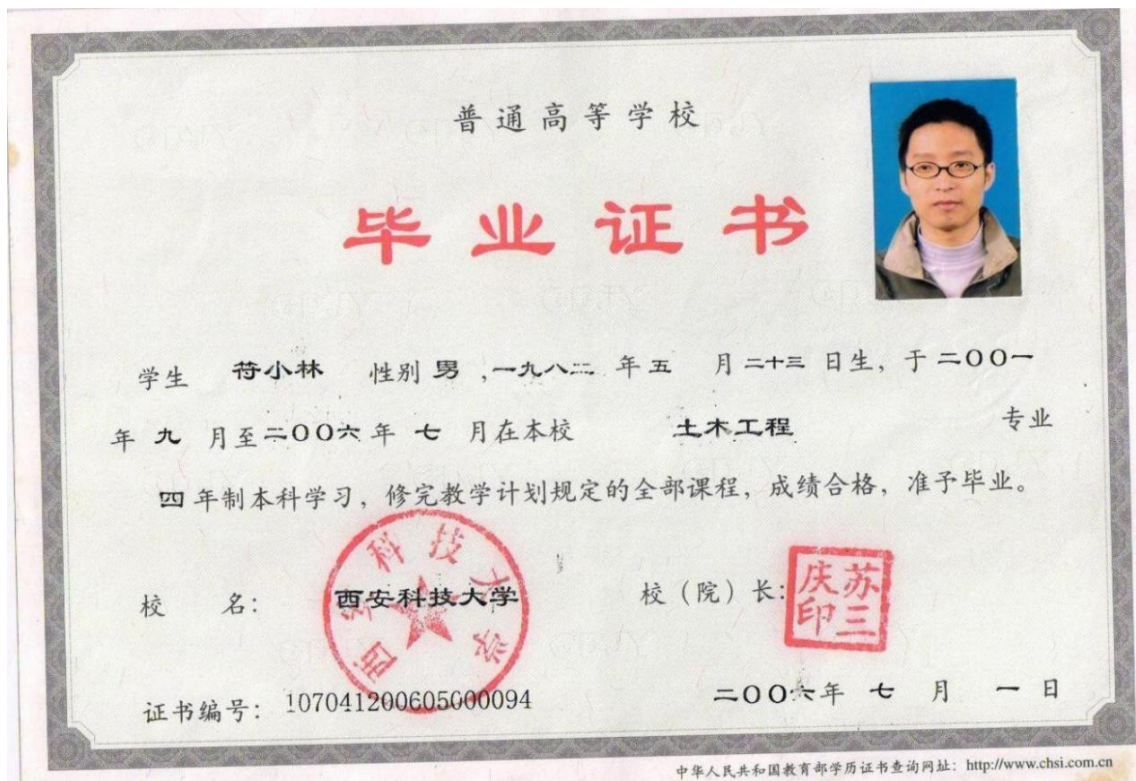 普通高等学校
毕业证书
学生 符小林 性别 男 ,一九八二 年 五 月 二十三 日生, 于 二〇〇一
年 九 月至 二〇〇六 年 七 月在本校 土木工程 专业
四 年制本科学习, 修完教学计划规定的全部课程, 成绩合格, 准予毕业。
校 名: 西安科技大学 校(院)长: 苏三庆印
西安科技大学
证书编号: 107041200605000094 二〇〇六年 七 月 一 日
中华人民共和国教育部学历证书查询网址: http://www.chsi.com.cn